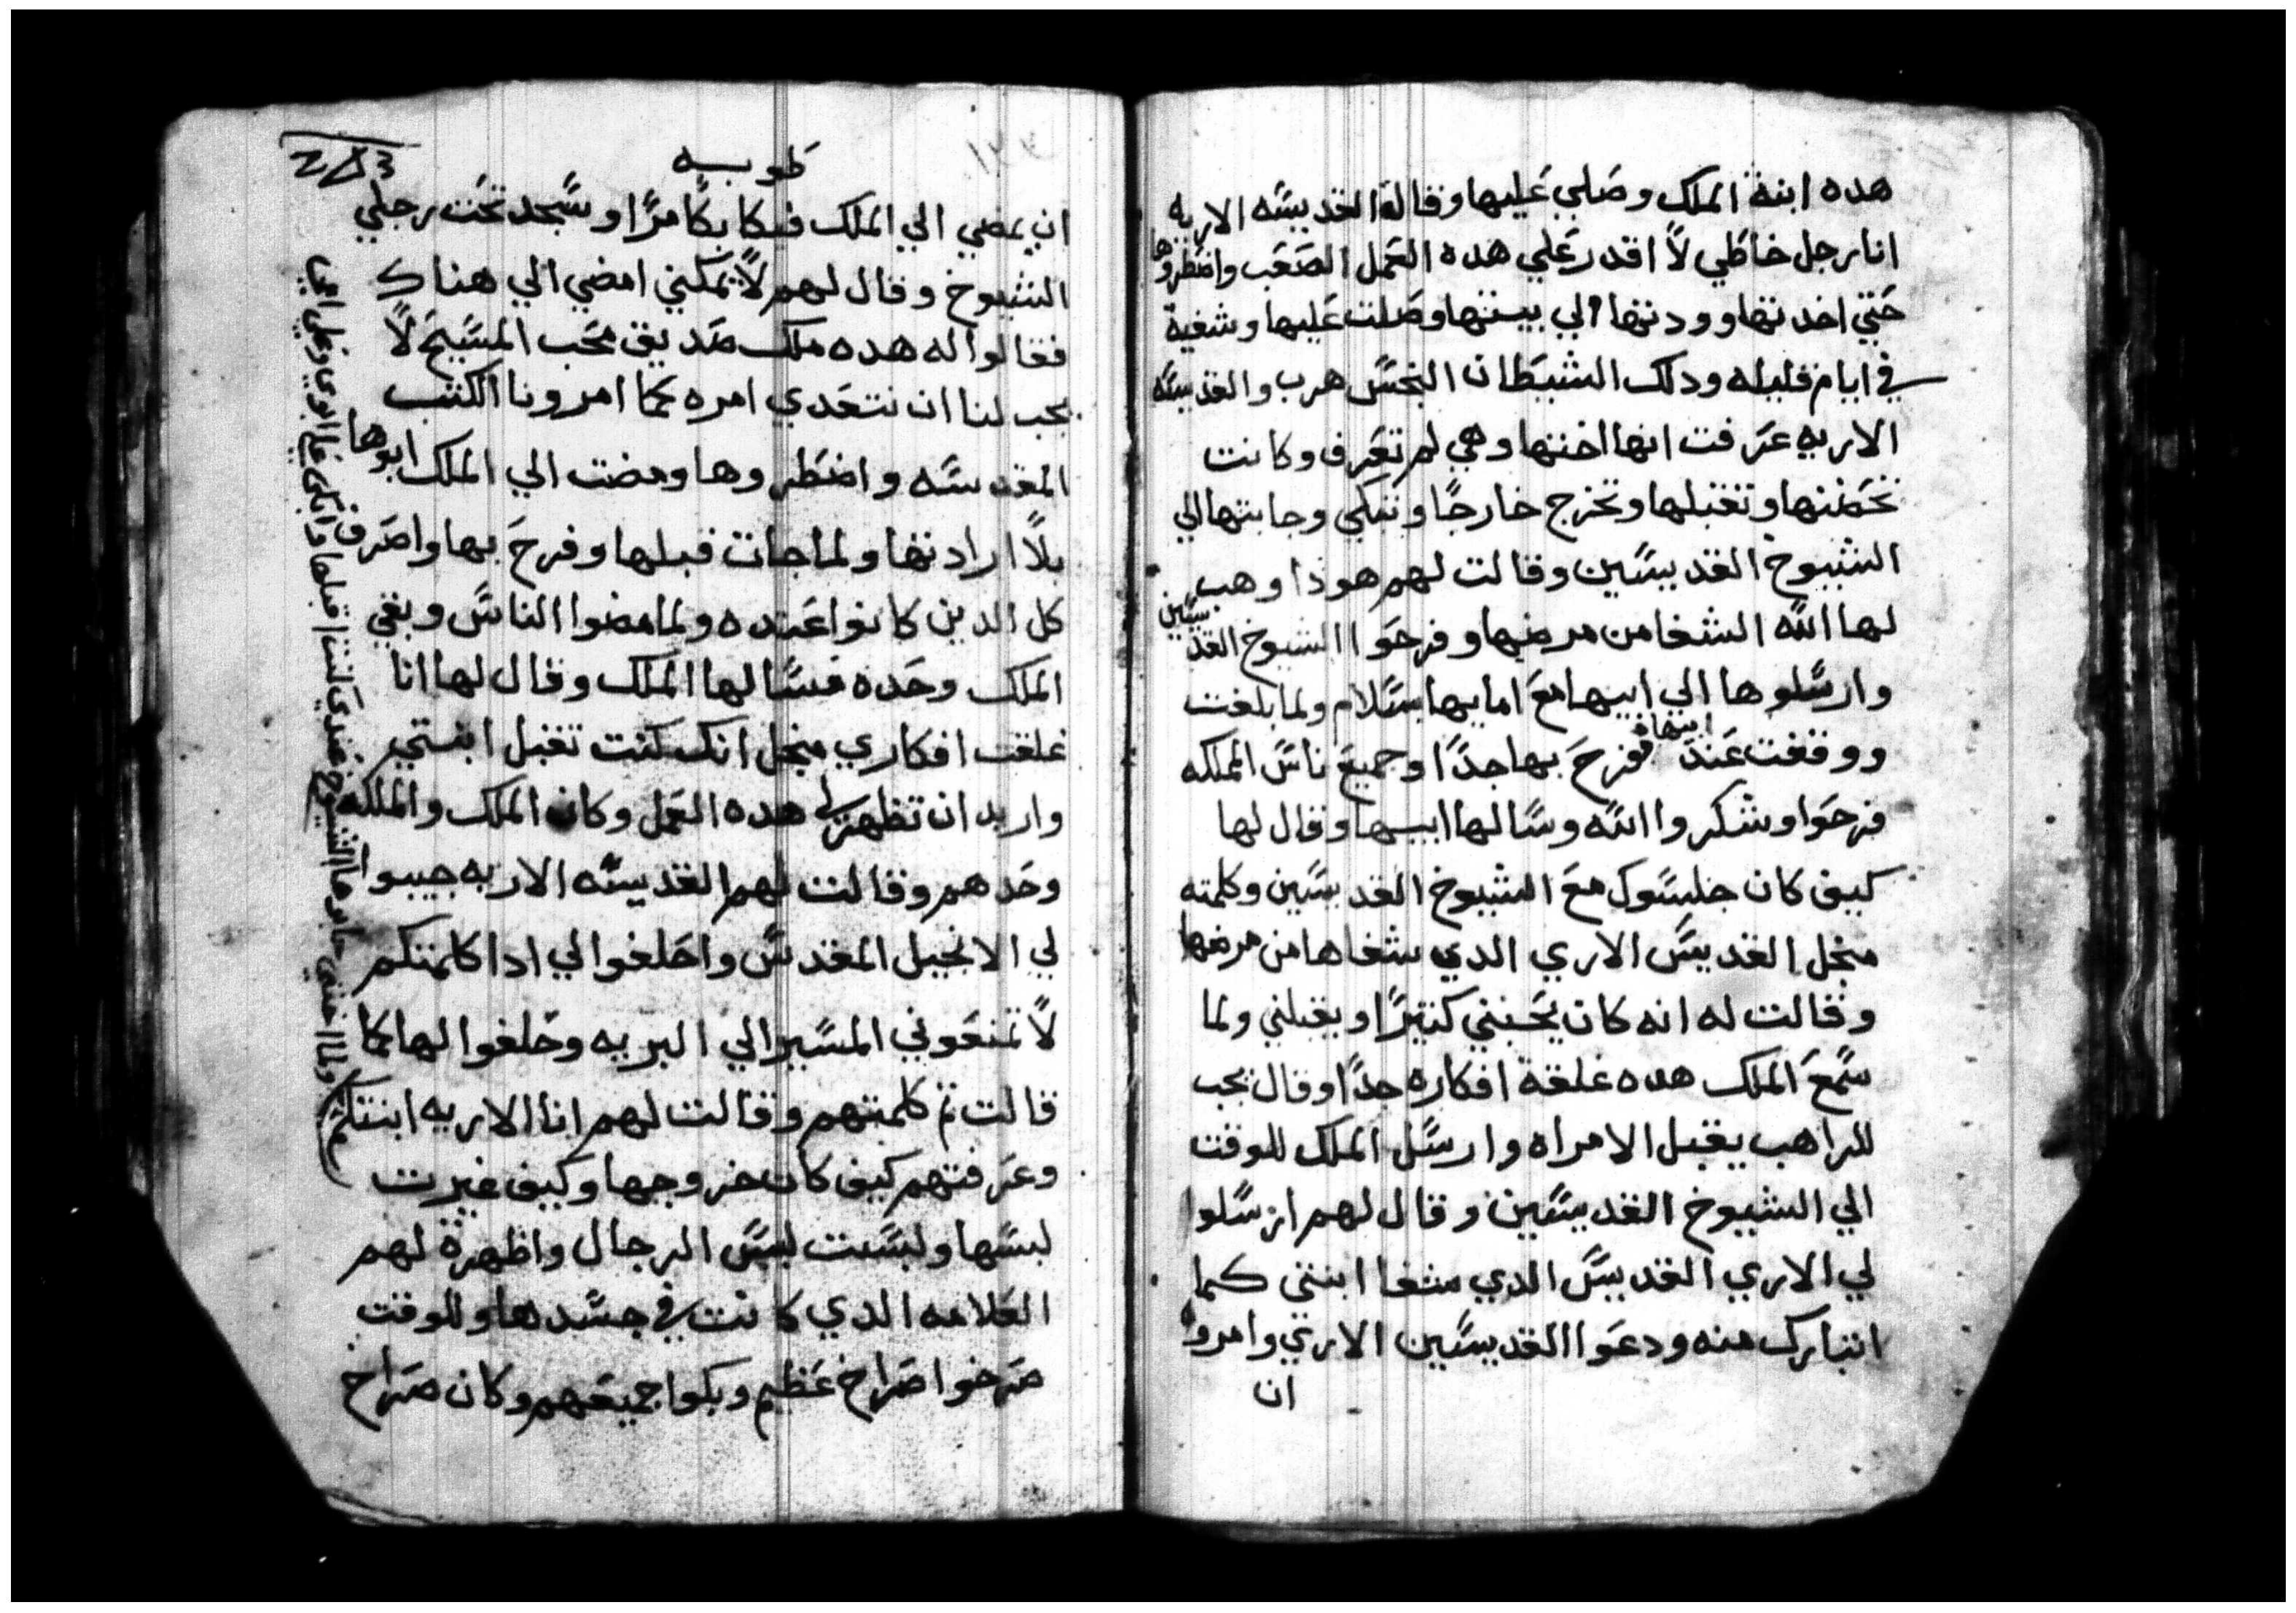 هده ابنة الملك وصلي عليها وقالة القديسه الاريه
انا رجل خاطي لا اقدر علي هده العمل الصعب واضطروها
حتي اخدتها وودتها الي بيتها وصلت عليها وشفية
في ايام قليله ودلك الشيطان النجس هرب والقديسه
الاريه عرفت انها اختها وهي لم تعرف وكانت
تحضنها وتقبلها وتخرج خارجا وتبكي وجابتها الي
الشيوخ القديسين وقالت لهم هودا وهب
لها الله الشفا من مرضها وفرحوا الشيوخ القديسين
وارسلوها الي ابيها مع امايها بسلام ولما بلغت
ووقفت عند ابيها ففرح بها جدا وجميع ناس المملكه
فرحوا وشكروا الله وسالها ابيها وقال لها
كيف كان جلسوك مع الشيوخ القديسين وكلمته
منجل القديس الاري الدي شفاها من مرضها
وقالت له انه كان يحبني كتيرا ويقبلني ولما
سمع الملك هده غلقة افكاره جدا وقال يجب
للراهب يقبل الامراه وارسل الملك للوقت
الي الشيوخ القديسين وقال لهم ارسلوا
لي الاري القديس الدي شفا ابنتي كما
اتبارك منه ودعوا القديسين الاري وامروا
ان
طوبه
ان يمضي الي الملك فبكا بكا مرا وسجد تحت رجلي
الشيوخ وقال لهم لا يمكني امضي الي هناك
فقالوا له هده ملك صديق محب المسيح لا
يجب لنا ان نتعدي امره كما امرونا الكتب
المقدسه واضطروها ومضت الي الملك ابوها
بلا ارادتها ولما جات قبلها وفرح بها واصرف
كل الدين كانوا عنده ولما مضوا الناس وبقي
الملك وحده فسالها الملك وقال لها انا
غلقت افكاري منجل انك كنت تقبل ابنتي
واريد ان تظهر لي هده العمل وكان الملك والملكه
وحدهم وقالت لهم القديسه الاريه جيبوا
لي الانجيل المقدس واحلفوا لي ادا كلمتكم
لا تمنعوني المسير الي البريه وحلفوا لها كما
قالت تم كلمتهم وقالت لهم انا الاريه ابنتكم
وعرفتهم كيف كان خروجها وكيف غيرت
لبسها ولبست لبس الرجال واظهرة لهم
العلامه الدي كانت في جسدها وللوقت
صرخوا صراخ عظيم وبكوا جميعهم وكان صراخ
ولما اختي جابوها الشيوخ عندي كنت اقبلها وابكي علي ابوي وعلي امي